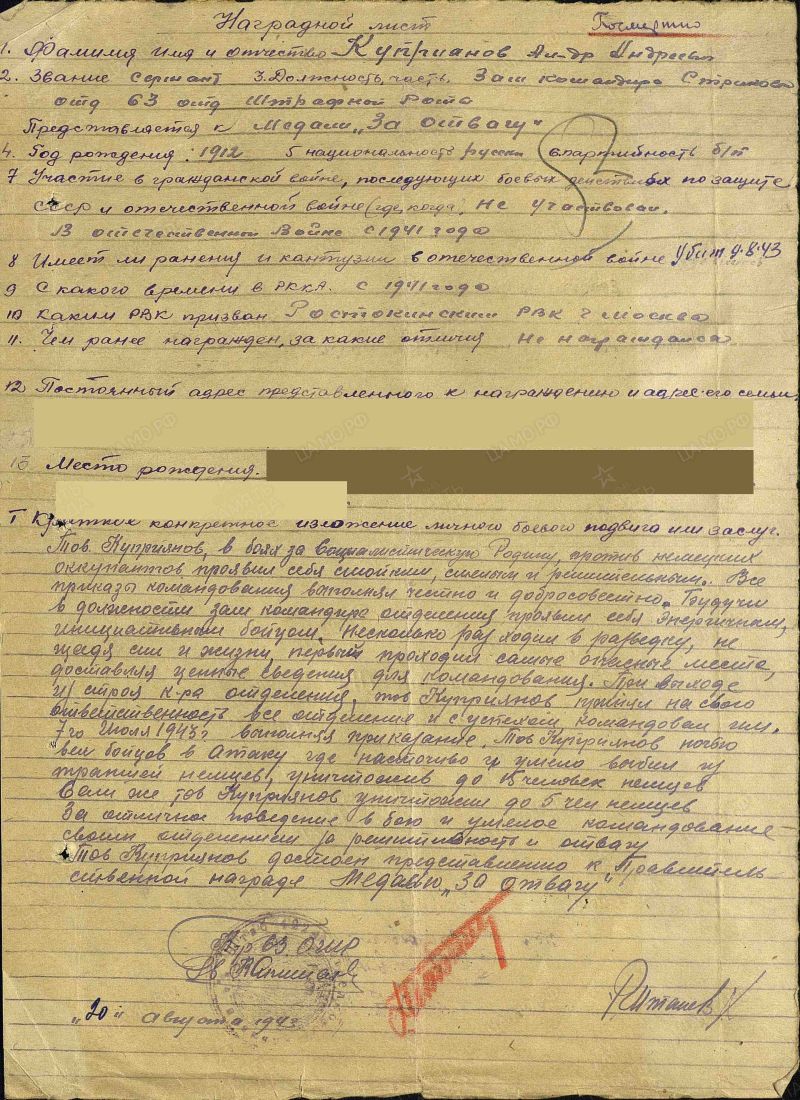 Наградной лист Посмертно
1. Фамилия имя и отчество Куприанов Ал-др Андреевич
2. Звание Сержант 3. Должность, часть. Зам командира Стрелков
отд 63 отд Штрафной Роты
Представляется к Медали „За отвагу"
4. Год рождения: 1912 5 национальность русский 6 партийность б/п
7 Участие в гражданской войне, последующих боевых действиях по защите
СССР и отечественной войне (где, когда). Не участвовал.
В отечественной Войне с 1941 года
8 Имеет ли ранения и кантузии в отечественной войне Убит 9.8.43
9 С какого времени в РККА. с 1941 года
10 Каким РВК призван Ростокинским РВК г Москва
11. Чем ранее награжден, за какие отличия Не награждался
12 Постоянный адрес представленного к награждению и адрес его семьи.
13 Место рождения.
I Краткое конкретное изложение личного боевого подвига или заслуг.
Тов. Куприянов, в боях за Социалистическую Родину, против немецких
оккупантов проявил себя стойким, смелым и решительным. Все
приказы командования выполнял честно и добросовестно. Будучи
в должности зам командира отделения проявил себя Энергичным,
инициативным бойцом. Несколько раз ходил в разведку, не
щадя сил и жизни, первым проходил самые опасные места,
доставляя ценные сведения для командования. При выходе
из строя к-ра отделения, тов Куприянов принял на свою
ответственность все отделение и с успехом командовал им.
7го Июля 1943г выполняя приказание. Тов Куприянов ночью
вел бойцов в Атаку где настойчиво и умело выбил из
траншей немцев, уничтожив до 15 человек немцев
Сам же тов Куприянов уничтожил до 5 чел немцев
За отличное поведение в бою и умелое командование
своим отделением за решительность и отвагу
Тов Куприянов достоен представлению к Правитель-
ственной награде Медалью „За отвагу"
К-р 63. ОШР
„20" августа 1943